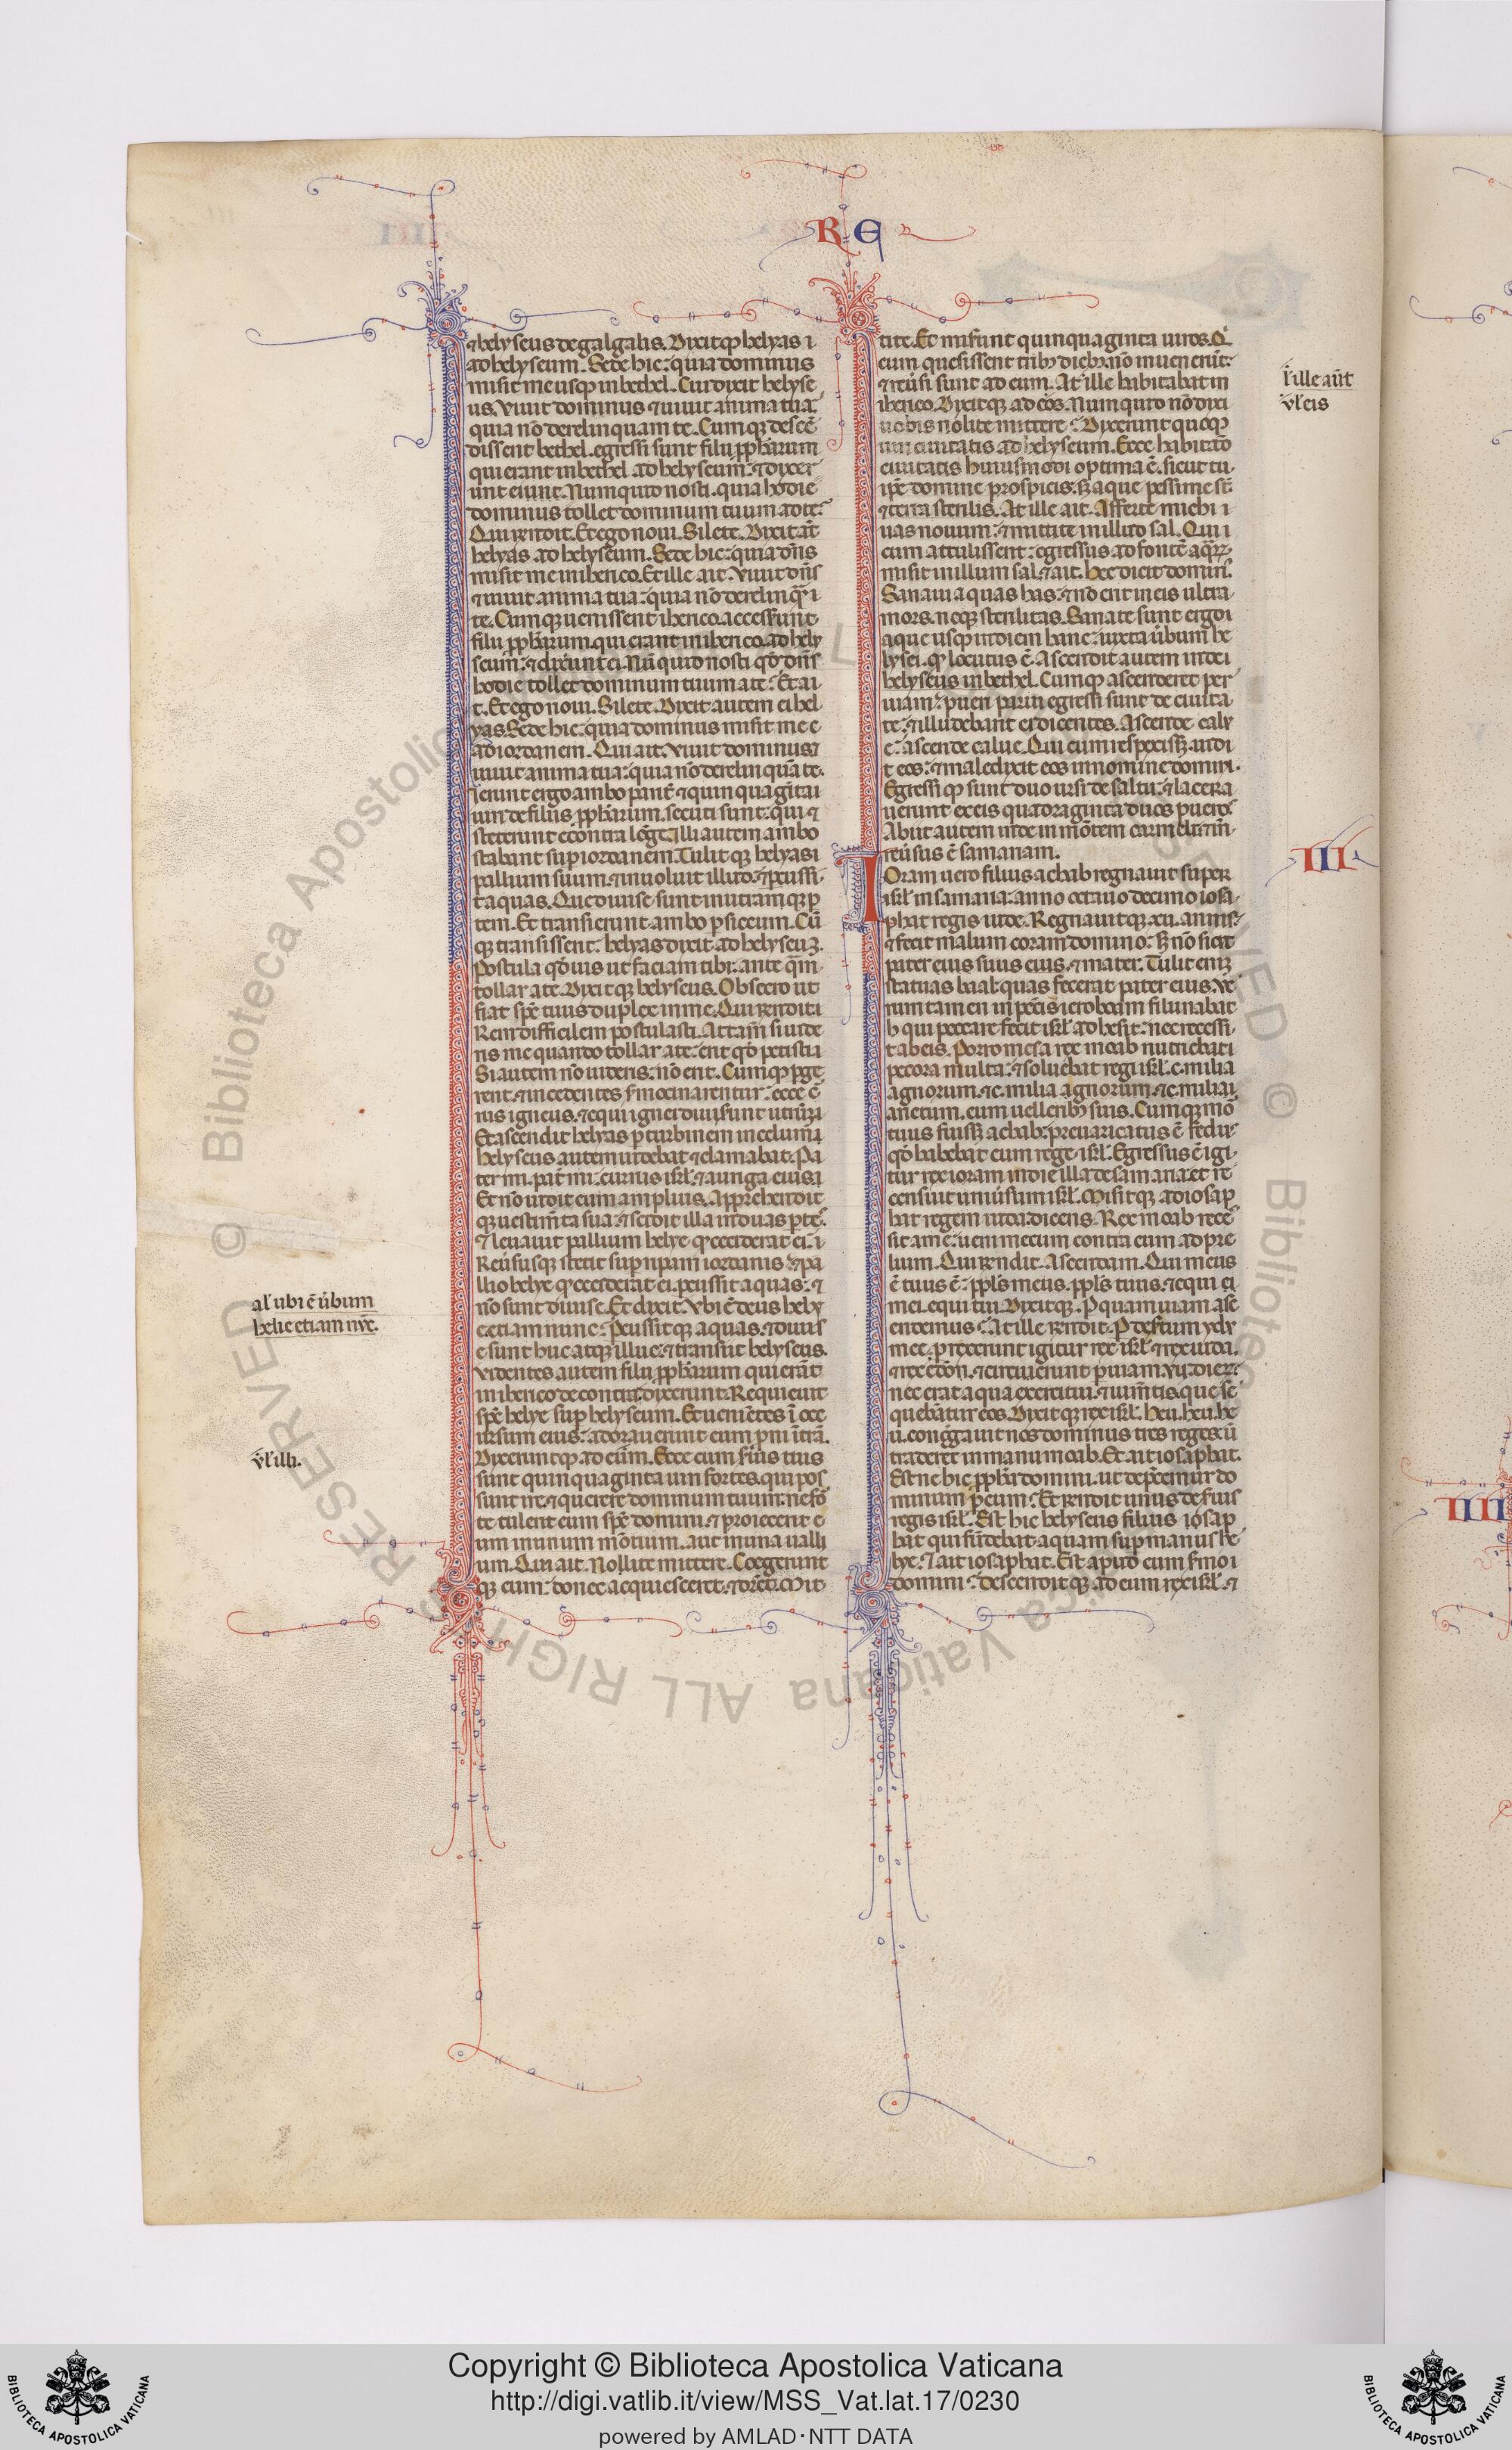 R E
⁊ helyseus de galgalis. Dixitqꝫ helyas i
ad helyseum. Sede hic: quia dominus
misit me usqꝫ in bethel. Cui dixit helyse
us. Viuit dominus ⁊ uiuit anima tua:
quia nō derelinquam te. Cumqꝫ descē
dissent bethel. egressi sunt filii ꝓphetarum
qui erant in bethel ad helyseum: ⁊ dixer
unt ei unt. Numquid nosti. quia hodie
dominus tollet dominum tuum a te?
Qui rendit. Et ego noui. Silete. Dixit aūt
helyas ad helyseum. Sede hic: quia dn̄s
misit me in iherico. Et ille ait. Viuit dn̄s
⁊ uiuit anima tua: quia nō derelinquā i
te. Cumqꝫ uenissent iherico. accesserunt
filii ꝓphetarum. qui erant in iherico. ad hely
seum: ⁊ dixerunt ei. Nūquid nosti qd̄ dn̄s
hodie tollet dominum tuum a te? Et ai
t. Et ego noui. Silete. Dixit autem ei hel
yas. Sede hic: quia dominus misit me e
ad iordanem. Qui ait. Viuit dominus ⁊
uiuit anima tua: quia nō derelinquā te.
Ierunt ergo ambo parit̄ ⁊ quinquagīta i
uiri de filiis ꝓphetarum. secuti sunt: qui ⁊
steterunt econtra lōge. Illi autem ambo
stabant suꝑ iordanem. Tulitqꝫ helyas i
pallium suum. ⁊ inuoluit illud. ⁊ ꝑcussi
t aquas. Que diuise sunt in utramqꝫ ꝑ
tem. Et transierunt ambo ꝑ siccum. Cū
qꝫ transissent: helyas dixit ad helyseuꝫ.
Postula qd̄ uis ut faciam tibi. ante q̄m
tollar a te. Dixitqꝫ helyseus. Obsecro ut
fiat spc̄ tuus duplex in me. Qui rendit i
Rem difficilem postulasti. Attam̄ si uide
ris me quando tollar a te. erit qd̄ petisti ⁊
Si autem nō uideris: nō erit. Cumqꝫ ꝑge
rent. ⁊ incedentes sermocinarentur: ecce c̄
rus igneus. ⁊ equi ignei diuiserunt utrūqꝫ
Et ascendit helyas ꝑ turbinem in celum ⁊
helyseus autem uidebat ⁊ clamabat. Pa
ter mi. pater mi. currus isrl̄. ⁊ auriga eius ⁊
Et nō uidit eum amplius. Apprehendit
qꝫ uestimenta sua. ⁊ scidit illa in duas ꝑtes.
⁊ leuauit pallium helye qd̄ ceciderat ei. i
Reuersusqꝫ stetit suꝑ ripam iordanis. ⁊ pa
llio helye qd̄ ceciderat ei. ꝑcussit aquas: ⁊
nō sunt diuise. Et dixit. Vbi ē deus hely
e. etiam nunc? Ꝑcussitqꝫ aquas. ⁊ diuis
e sunt huc atqꝫ illuc. ⁊ transiit helyseus.
Videntes autem filii ꝓphetarum qui erāt
in iherico de contra. dixerunt. Requieuit
spc̄ helye suꝑ helyseum. Et ueniētes ī occ
ursum eius: adorauerunt eum ꝓni ī trā.
Dixeruntqꝫ ad eum. Ecce cum seruis tuis
sunt quinquaginta uiri fortes. qui pos
sunt ire. ⁊ querere dominum tuum: ne for
te tulerit eum spc̄ domini. ⁊ proiecerit e
um in unum mōtium. aut in una ualli
um. Qui ait. Nolite mittere. Coegerunt
qꝫ eum: donec acquiesceret. ⁊ diceret. Mit
tite. Et miserunt quinquaginta uiros. Q̄
cum quesissent tribꝫ diebꝫ. nō inuenerūt:
⁊ reuersi sunt ad eum. At ille habitabat in
iherico. Dixitqꝫ ad eos. Numquid nō dixi
uobis nolite mittere? Dixerunt quoqꝫ
uiri ciuitatis ad helyseum. Ecce habitatio
ciuitatis huiusmodi optima ē. sicut tu
ip̄e domine prospicis. sꝫ aque pessime st̄
⁊ terra sterilis. At ille ait. Afferte michi i
uas nouum: ⁊ mittite in illud sal. Qui i
cum attulissent: egressus ad fontē aquaꝝ.
misit in illum sal. ⁊ ait. Hec dicit domin̄.
Sanaui aquas has: ⁊ nō erit in eis ultra
mors. neqꝫ sterilitas. Sanate sunt ergo i
aque usqꝫ in diem hanc: iuxta uerbum he
lysei. qd̄ locutus ē. Ascendit autem inde i
helyseus in bethel. Cumqꝫ ascenderet per
uiam: pueri parui egressi sunt de ciuita
te. ⁊ illudebant ei dicentes. Ascende calu
e: ascende calue. Qui cum respexisset. uidi
t eos: ⁊ maledixit eos in nomine domini.
Egressiqꝫ sunt duo ursi de saltu: ⁊ lacera
uerunt ex eis quadraginta duos pueros.
Abiit autem inde in mōtem carmeli: ⁊ īn
reuersus ē samariam.
Ioram uero filius achab regnauit super
isrl̄ in samaria: anno octauo decimo iosa
phat regis iude. Regnauitqꝫ .xii. annis:
⁊ fecit malum coram domino: sꝫ nō sicut
pater eius suus eius. ⁊ mater. Tulit enī
statuas baal: quas fecerat pater eius. Ve
rum tamen in pecc̄is ieroboam filii nabat
h qui peccare fecit isrl̄ adhesit: nec recessi
t ab eis. Porro mesa rex moab nutriebat i
pecora multa: ⁊ soluebat regi isrl̄. c. milia
agnorum. ⁊ c. milia agnorum. ⁊ c. milia i
arietum. cum uelleribꝫ suis. Cumqꝫ mor
tuus fuisset achab: preuaricatus ē fedus
qd̄ habebat cum rege isrl̄. Egressus ē igi
tur rex ioram in die illa de samaria: et re
censuit uniuersum isrl̄. Misitqꝫ ad iosap
hat regem iuda dicens. Rex moab reces
sit a me: ueni mecum contra eum ad pre
lium. Qui rendit. Ascendam. Qui meus
ē tuus ē: ppl̄s meus. ppl̄s tuus. ⁊ equi ei
mei. equi tui. Dixitqꝫ. Ꝑ quam uiam asc
endemus? At ille rendit. Ꝑ desertum ydu
mee. ꝑrexerunt igitur rex isrl̄. ⁊ rex iuda.
⁊ rex edom. ⁊ circuierunt ꝑ uiam .vii. dierꝫ:
nec erat aqua exercitui. ⁊ iumentis. que se
quebātur eos. Dixitqꝫ rex isrl̄. Heu. heu. he
u. cong̃gauit nos dominus tres reges. ut
traderet in manu moab. Et ait iosaphat.
Estne hic ꝓpheta domini. ut deprecemur do
minum ꝑ eum? Et rendit unus de suis
regis isrl̄. Est hic helyseus filius iosap
hat qui fundebat aquam suꝑ manus he
lye. ⁊ ait iosaphat. Est apud eum sermo i
domini. Descenditqꝫ ad eum rex isrl̄. ⁊
l' ille aūt
ul' eis
III
al' ubi ē uerbum
helie etiam nūc.
ul' illi.
IIII
Copyright © Biblioteca Apostolica Vaticana
http://digi.vatlib.it/view/MSS_Vat.lat.17/0230
powered by AMLAD·NTT DATA
BIBLIOTECA APOSTOLICA VATICANA
BIBLIOTECA APOSTOLICA VATICANA